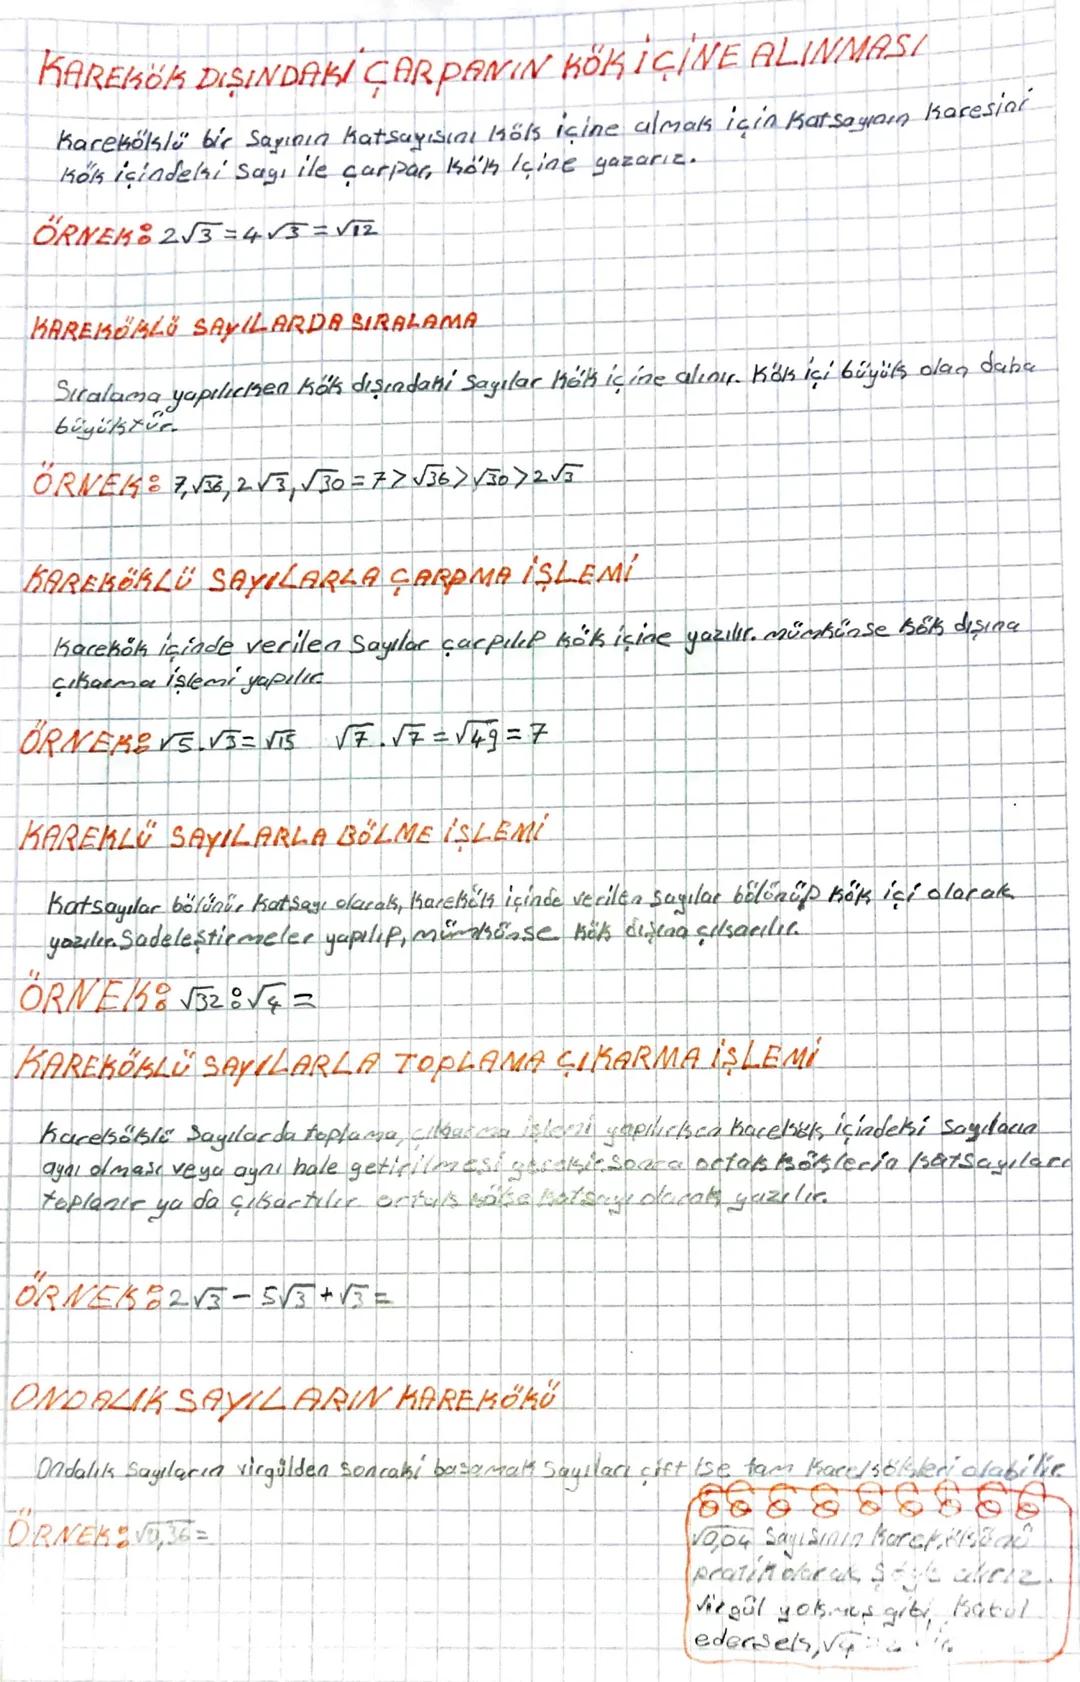 KAREKÖK DIŞINDAKİ ÇARPANIN KÖK İÇİNE ALINMASI
Kareköklü bir Sayının Katsayısını Kök içine almak için Katsayının Karesini
Kök içindeki Sayı ile çarpar, Kök İçine yazarız.
ÖRNEK: 2√3 = 4√3 = √12
KAREKÖKLÜ SAYILARDA SIRALAMA
Sıralama yapılırken Kök dışındaki Sayılar Kök içine alınır. Kök içi büyük olan daha
büyüktür.
ÖRNEK: 7, √36, 2√3, √30 = 7 > √36 > √30 > 2√3
KAREKÖKLÜ SAYILARLA ÇARPMA İŞLEMİ
Karekök içinde verilen Sayılar çarpılıp Kök içine yazılır. mümkünse Kök dışına
çıkarma işlemi yapılır
ÖRNEK: √5.√3 = √15 √7.√7 = √49 = 7
KAREKLÜ SAYILARLA BÖLME İŞLEMİ
Katsayılar bölünür, Katsayı olarak, Karekök içinde verilen Sayılar bölünüp Kök içi olarak
yazılır. Sadeleştirmeler yapılıp, mümkünse Kök dışına çıkarılır.
ÖRNEK: √32 : √4 =
KAREKÖKLÜ SAYILARLA TOPLAMA ÇIKARMA İŞLEMİ
Kareköklü Sayılarda toplama, çıkarma işlemi yapılırken Karekök içindeki Sayıların
aynı olması veya aynı hale getirilmesi gerekir. Sonra ortak Köklerin Katsayıları
toplanır ya da çıkartılır ortak köke Katsayı olarak yazılır.
ÖRNEK: 2√3 - 5√3 + √3 =
ONDALIK SAYILARIN KAREKÖKÜ
Ondalık Sayıların virgülden Sonraki basamak Sayıları çift İse tam Karekökleri olabilir
ÖRNEK: √0,36 =
√0,04 Sayısının Karekökünü
pratik olarak Şöyle alırız.
Virgül yokmuş gibi Kabul
edersek, √4